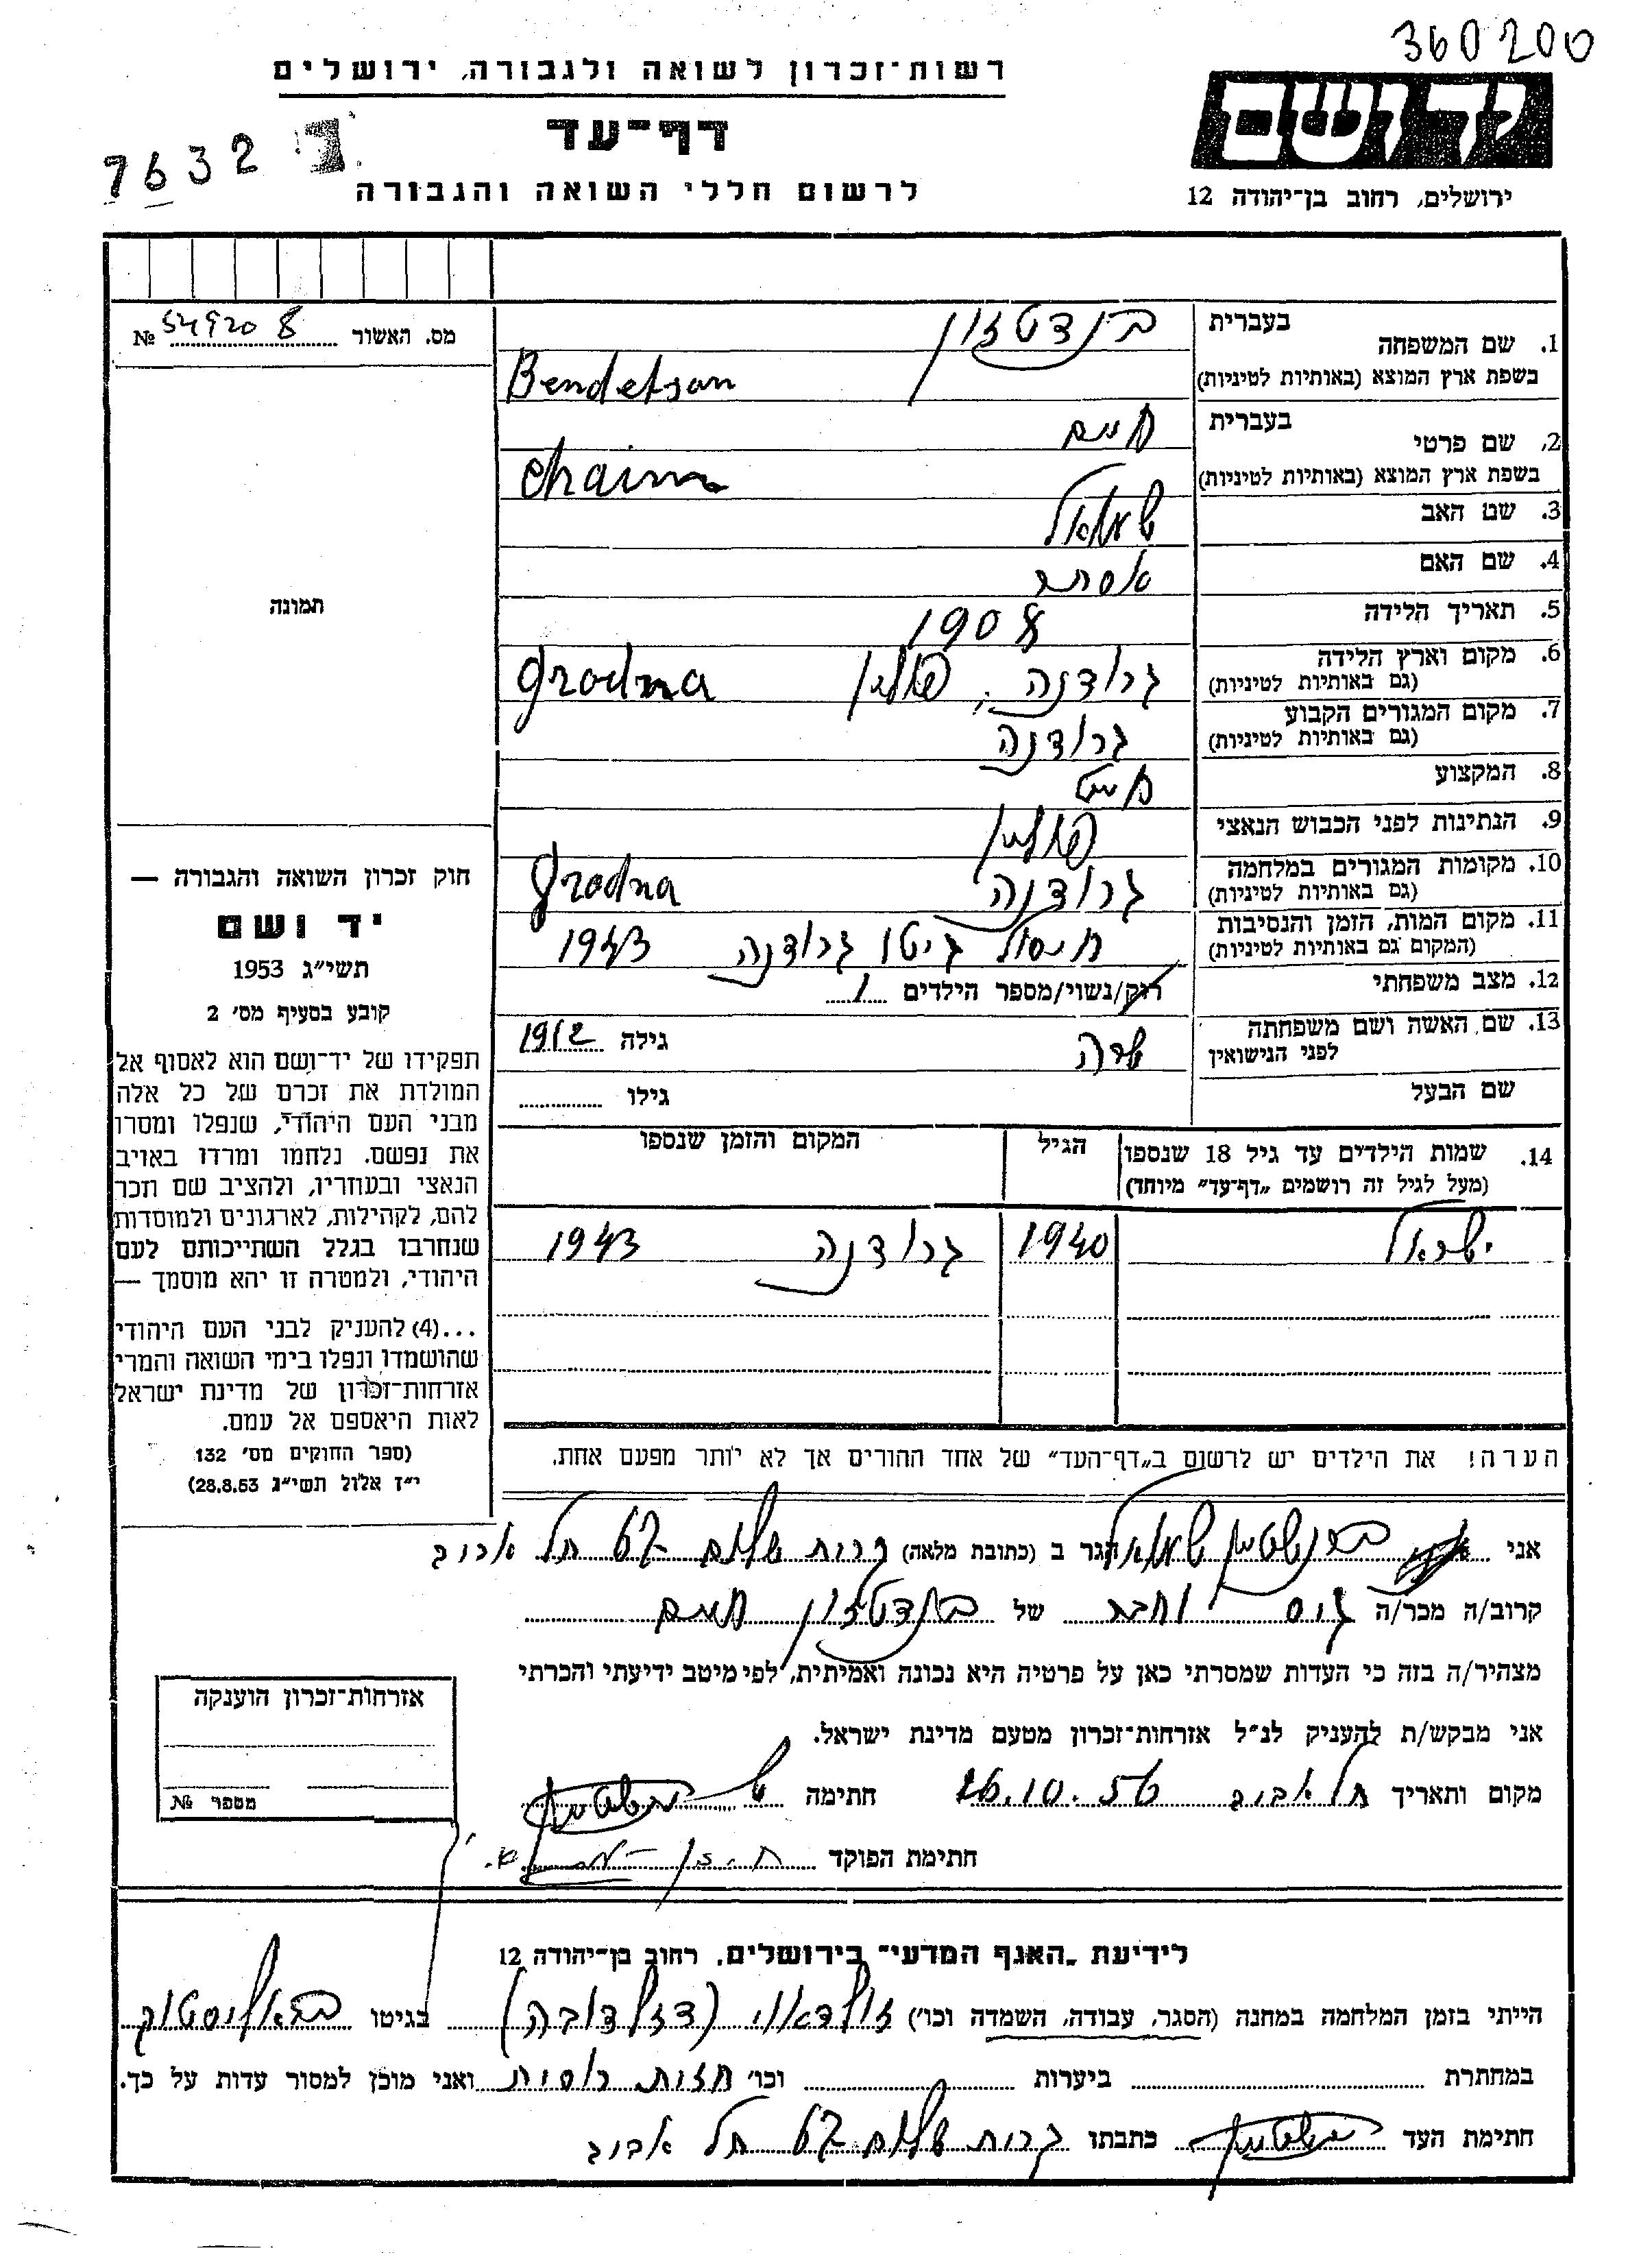 360200
רשות־זכרון לשואה ולגבורה, ירושלים
יד ושם
דף־עד
7632
לרשום חללי השואה והגבורה
ירושלים, רחוב בן־יהודה 12
מס. האשור № 549208
1. שם המשפחה בעברית בנדטזון
בשפת ארץ המוצא (באותיות לטיניות) Bendetson
2. שם פרטי בעברית חיים
בשפת ארץ המוצא (באותיות לטיניות) Chaim
3. שם האב שמואל
4. שם האם אסתר
5. תאריך הלידה 1908
6. מקום וארץ הלידה (גם באותיות לטיניות) גרודנה, פולין Grodna
7. מקום המגורים הקבוע (גם באותיות לטיניות) גרודנה
8. המקצוע חייט
9. הנתינות לפני הכבוש הנאצי פולין
10. מקומות המגורים במלחמה (גם באותיות לטיניות) גרודנה Grodna
11. מקום המות, הזמן והנסיבות (המקום גם באותיות לטיניות) חיסול גיטו גרודנה 1943
12. מצב משפחתי רוק/נשוי/מספר הילדים 1
13. שם האשה ושם משפחתה לפני הנישואין שרה גילה 1912
שם הבעל גילו
14. שמות הילדים עד גיל 18 שנספו הגיל המקום והזמן שנספו
(מעל לגיל זה רושמים "דף־עד" מיוחד)
ישראל 1940 גרודנה 1943
הערה! את הילדים יש לרשום ב"דף־העד" של אחד ההורים אך לא יותר מפעם אחת.
תמונה
חוק זכרון השואה והגבורה —
יד ושם
תשי"ג 1953
קובע בסעיף מס׳ 2
תפקידו של יד־ושם הוא לאסוף אל
המולדת את זכרם של כל אלה
מבני העם היהודי, שנפלו ומסרו
את נפשם, נלחמו ומרדו באויב
הנאצי ובעוזריו, ולהציב שם וזכר
להם, לקהילות, לארגונים ולמוסדות
שנחרבו בגלל השתייכותם לעם
היהודי, ולמטרה זו יהא מוסמך —
...(4) להעניק לבני העם היהודי
שהושמדו ונפלו בימי השואה והמרי
אזרחות־זכרון של מדינת ישראל
לאות היאספם אל עמם.
(ספר החוקים מס׳ 132
י"ז אלול תשי"ג 28.8.53)
אני שמואל הגר ב (כתובת מלאה) קרית שלום תל אביב
קרוב/ה מכר/ה גיס וחבר של בנדטזון חיים
מצהיר/ה בזה כי העדות שמסרתי כאן על פרטיה היא נכונה ואמיתית, לפי מיטב ידיעתי והכרתי
אני מבקש/ת להעניק לנ"ל אזרחות־זכרון מטעם מדינת ישראל.
מקום ותאריך תל אביב 26.10.56 חתימה
חתימת הפוקד
אזרחות־זכרון הוענקה
מספר №
לידיעת "האגף המדעי" בירושלים, רחוב בן־יהודה 12
הייתי בזמן המלחמה במחנה (הסגר, עבודה, השמדה וכו׳) בגיטו ביאליסטוק
במחתרת ביערות וכו׳ חזית רוסית ואני מוכן למסור עדות על כך.
חתימת העד כתבתו קרית שלום תל אביב